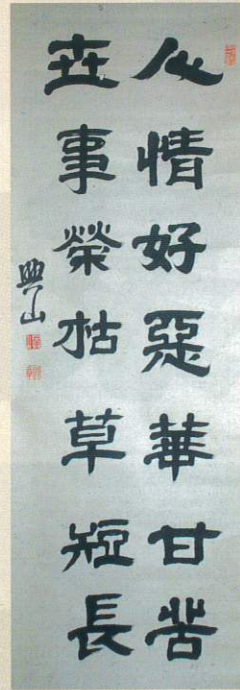 人情好惡華甘苦
世事榮枯草短長
興山